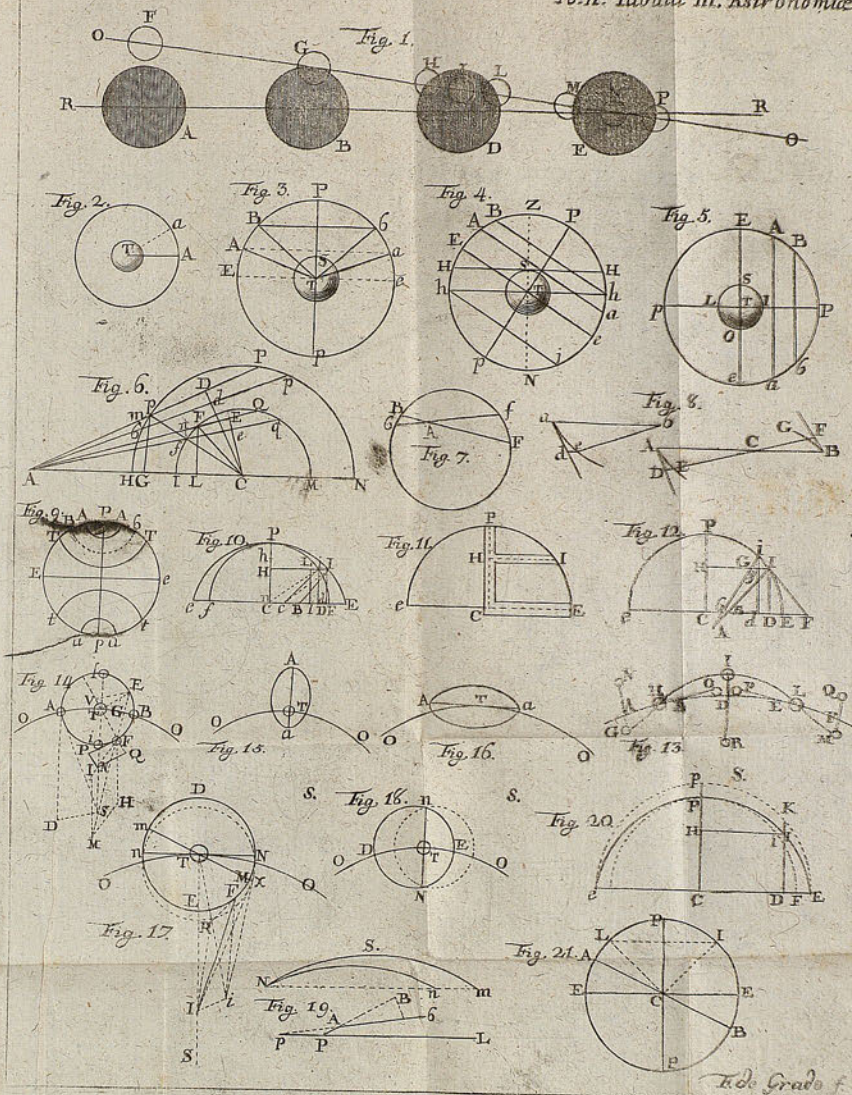 Tabula III. Astronomiæ
Fig. 1.
O F G H I L M K P R
R A B D E O
Fig. 2.
T a A
Fig. 3.
P B 6 A S a E T e p
Fig. 4.
Z A B P E H S H h T h a e i p N
Fig. 5.
E A B S p L T l P O e a b
Fig. 6.
P D p d m p F E Q 6 n f e q A H G I L C M N
Fig. 7.
B f 6 A F
Fig. 8.
a b d e A C G F B D E
Fig. 9.
B A P A 6 T T E e t t a p a
Fig. 10.
P h H L I e f C c B l D F E
Fig. 11.
P H I e C E
Fig. 12.
P i H G I e C d D E F A
Fig. 14
I E V A T G B O O i P F Q I N S H D M
Fig. 15.
A T a O O
Fig. 16.
A T a O O
Fig. 13.
I N H O P L Q D E G R M
S.
S.
Fig. 17
D m n T N M X O O E F R I i S
Fig. 18.
n D T E O O N
Fig. 20.
P S. P K H I e C D F E
S.
N n m
Fig. 19.
B A 6 P P L
Fig. 21.
P L I A E C E B P
F. de Grado f.